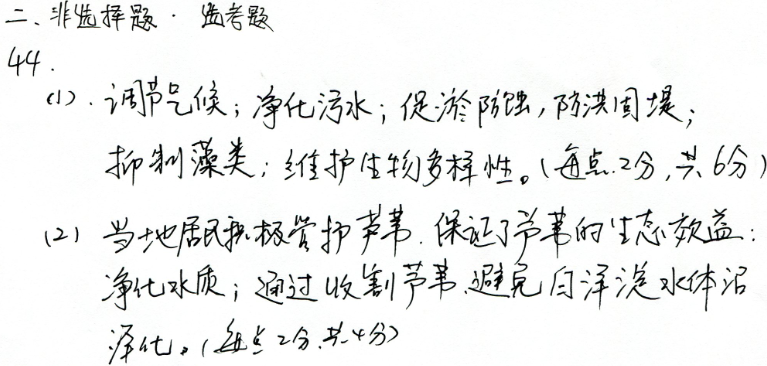 二、非选择题·选考题
44.
(1).调节气候；净化污水；促淤防蚀，防洪固堤；
抑制藻类；维护生物多样性。(每点2分,共6分)
(2) 当地居民积极管护芦苇.保证了芦苇的生态效益：
净化水质；通过收割芦苇.避免白洋淀水体沼
泽化。(每点2分.共4分)